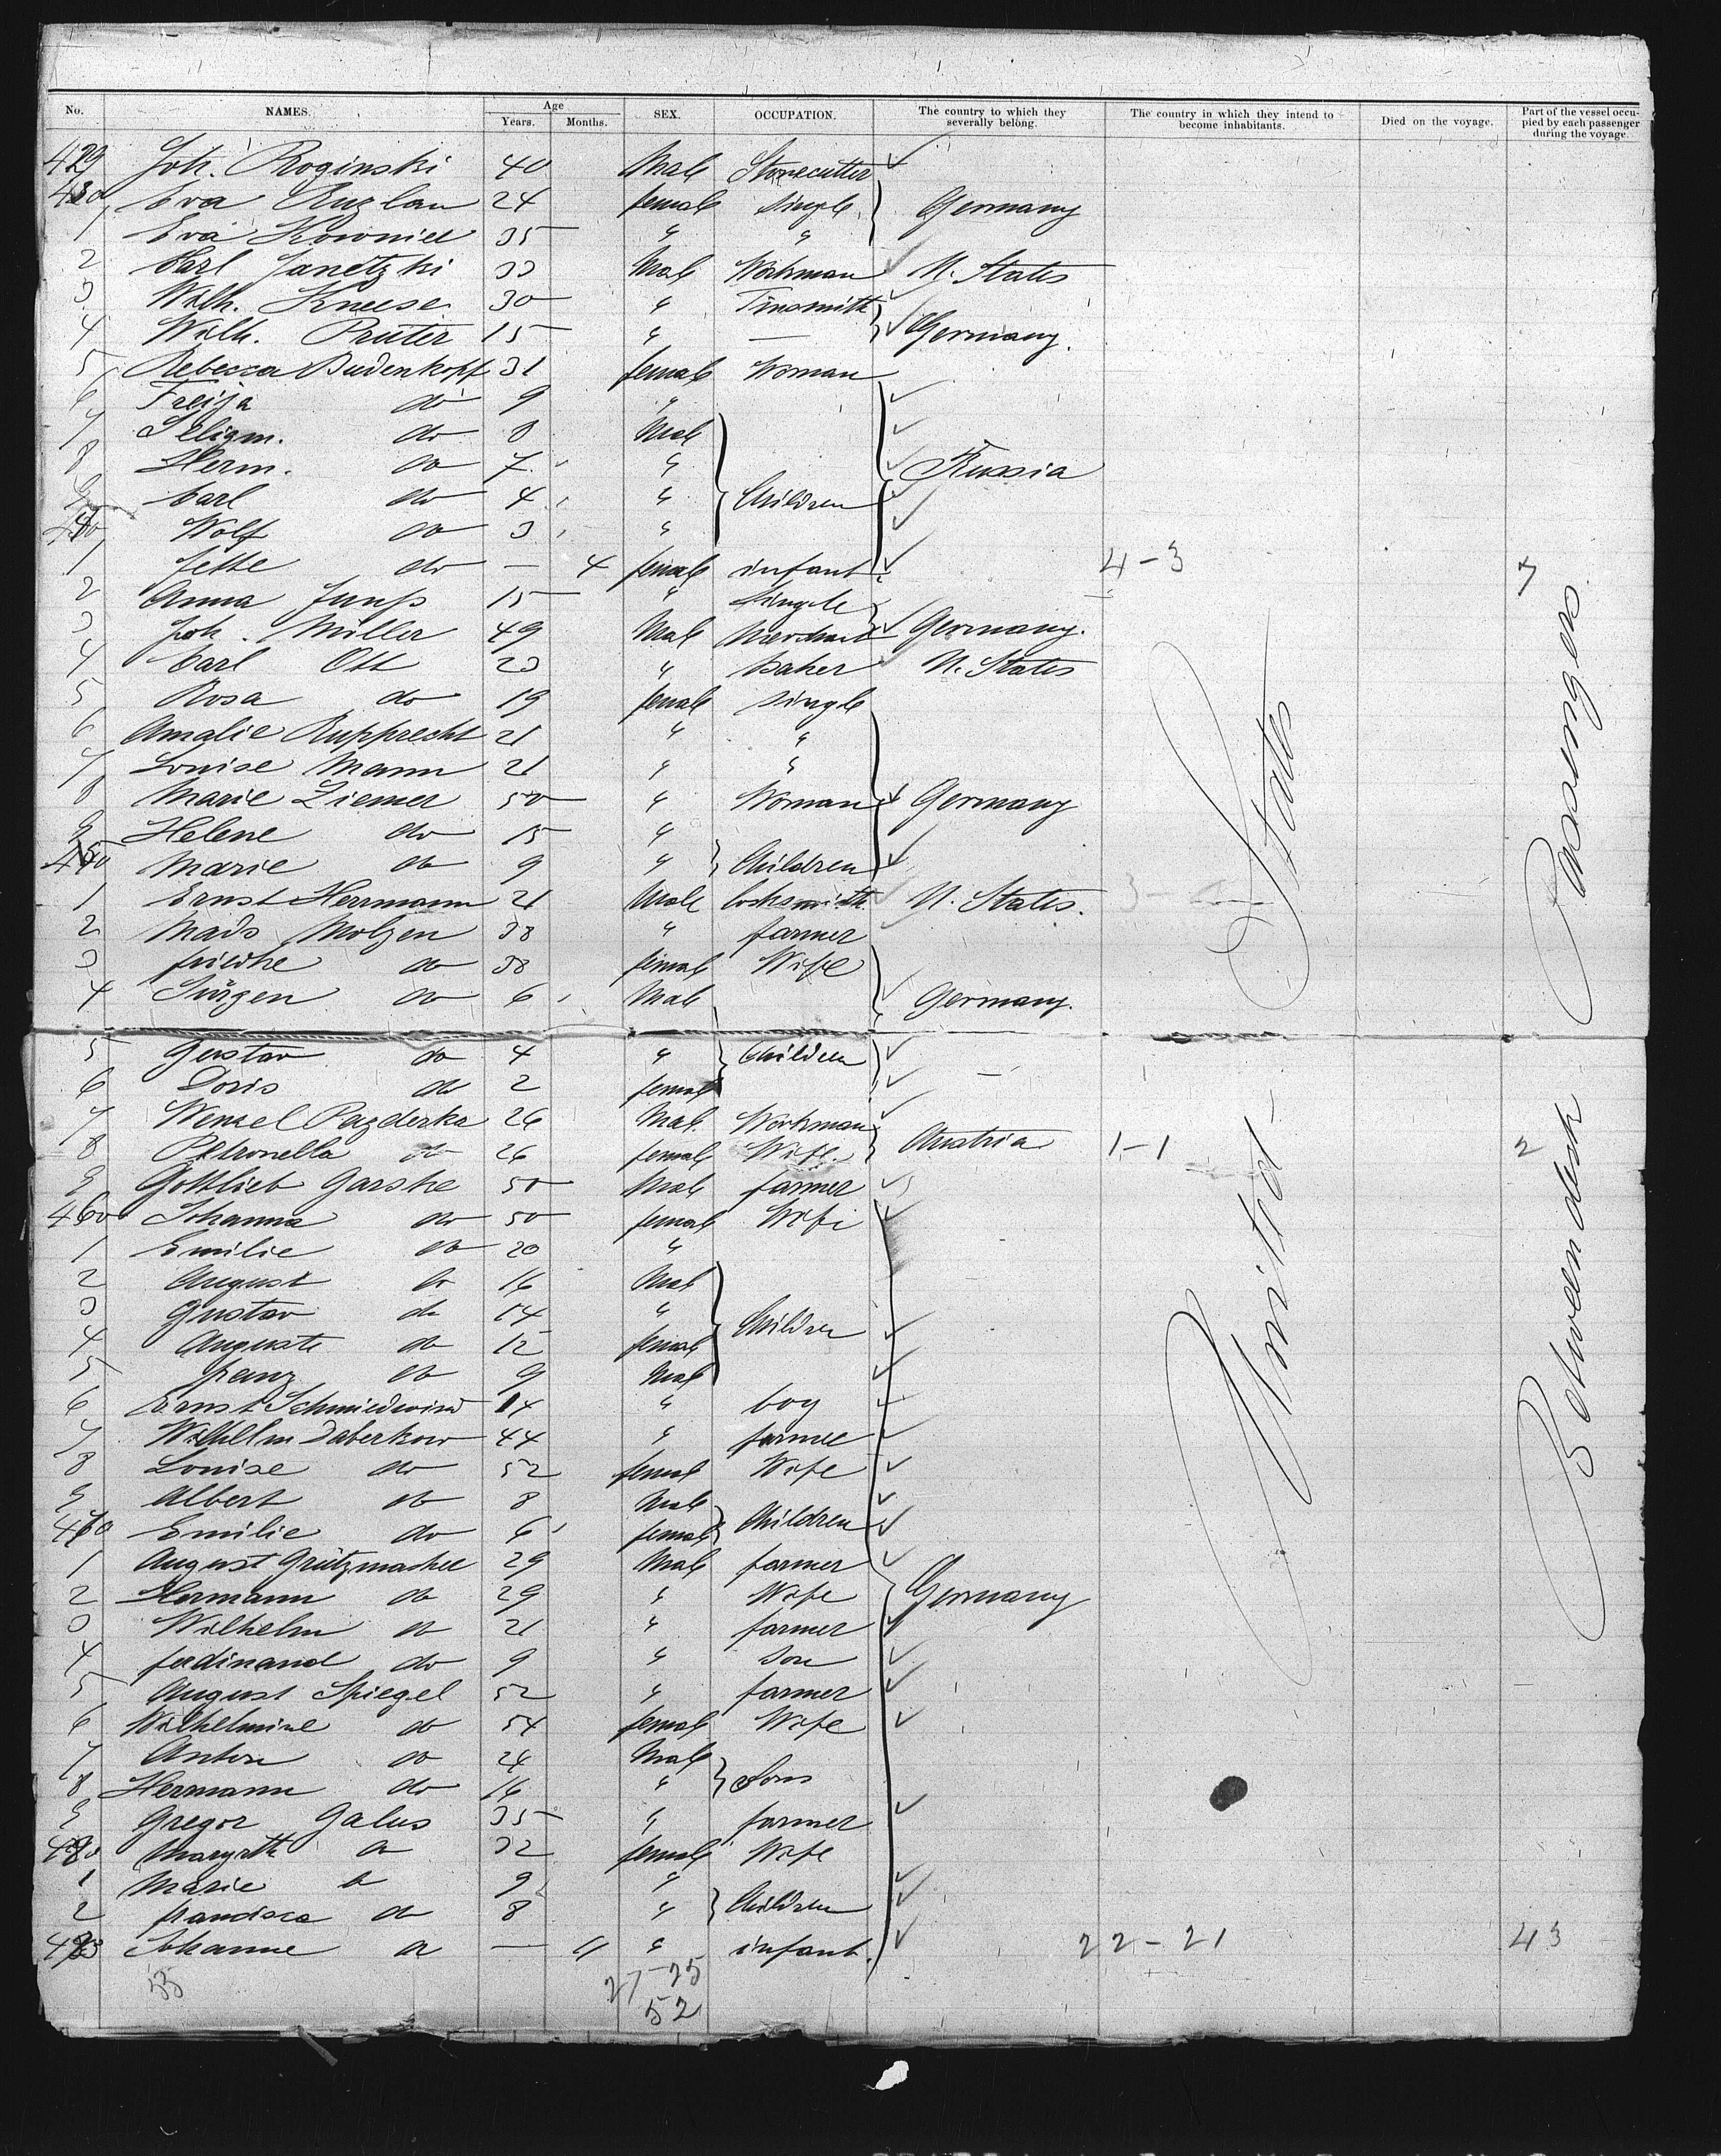 No. NAMES. Age Years. Months. SEX. OCCUPATION. The country to which they severally belong. The country in which they intend to become inhabitants. Died on the voyage. Part of the vessel occupied by each passenger during the voyage
429 Joh. Roginski 40 Male Stonecutter
430 Eva 24 female single Germany
1 Eva 35 " "
2 Carl Janetzki 33 Male Workman U. States
3 Wilh. Kneese 30 " Tinsmith
4 Wilh. Pruter 15 " — Germany.
5 Rebecca Budenkopf 31 female Woman
6 Freija do 9 "
7 Seligm. do 8 Male
8 Herm. do 7 " Russia
9 Carl do 4 " Children
440 Wolf do 3 "
1 Jette do — 4 female infant 4-3 7
2 Anna 15 " Single
3 Joh. Miller 49 Male Merchant Germany.
4 Carl Ott 23 " Baker U. States
5 Rosa do 19 female single
6 Amalie Rupprecht 21 " "
7 Louise Mann 21 " "
8 Marie Ziemer 50 " Woman Germany
9 Helene do 15 "
450 Marie do 9 " Children
1 Ernst Herrmann 21 Male locksmith U. States.
2 Mads Molzen 38 " farmer
3 do 38 female Wife
4 Jürgen do 6 Male Germany.
5 Gustav do 4 " Children
6 Doris do 2 female
7 Wenzel Pazderka 26 Male Workman
8 Petronella do 26 female Wife Austria 1-1 2
9 Gottlieb Garske 50 Male farmer
460 Johanna do 50 female Wife
1 Emilie do 20 "
2 August do 16 Male
3 Gustav do 14 " Children
4 Auguste do 12 female
5 franz do 9 Male
6 Ernst 14 " boy
7 Wilhelm Daberkow 44 " farmer
8 Louise do 52 female Wife
9 Albert do 8 Male
470 Emilie do 6 female Children
1 August Grützmacher 29 Male farmer
2 Hermann do 29 " Wife Germany
3 Wilhelm do 21 " farmer
4 ferdinand do 9 " Son
5 August Spiegel 52 " farmer
6 Wilhelmine do 54 female Wife
7 Anton do 24 Male
8 Hermann do 16 " Sons
9 Gregor Galus 35 " farmer
480 do 32 female Wife
1 Marie do 9 "
2 francisca do 8 " Children
483 Johanne do — " infant. 22-21 43
53 27-25
52
United States
Between deck Passengers